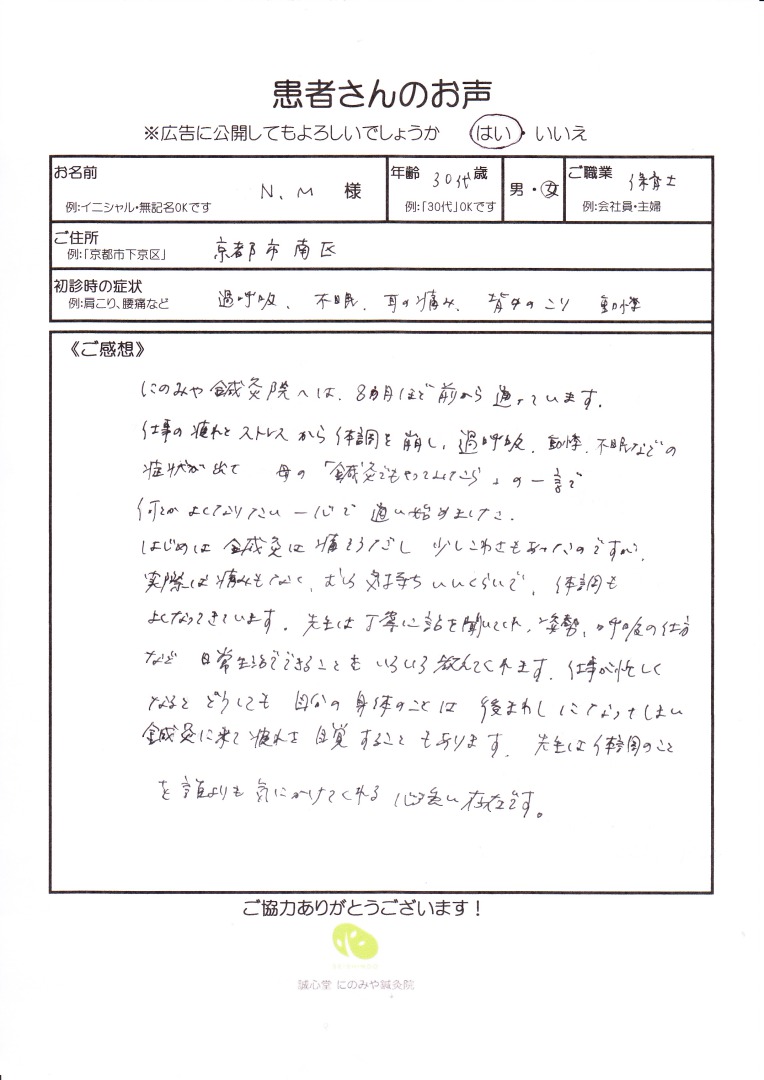 患者さんのお声
※広告に公開してもよろしいでしょうか はい・いいえ
お名前 N、M 様
例:イニシャル・無記名OKです
年齢 30代 歳
例:「30代」OKです
男・女
ご職業 保育士
例:会社員・主婦
ご住所
例:「京都市下京区」 京都市南区
初診時の症状
例:肩こり、腰痛など 過呼吸、不眠、耳の痛み、背中のこり 動悸
《ご感想》
にのみや鍼灸院へは、8ヵ月ほど前から通っています。
仕事の疲れとストレスから体調を崩し、過呼吸、動悸、不眠などの
症状が出て 母の「鍼灸でもやってみたら」の一言で
何とかよくなりたい一心で通い始めました。
はじめは鍼灸は痛そうだし少しこわさもあったのですが、
実際は痛みもなく、むしろ気持ちいいくらいで、体調も
よくなってきています。先生は丁寧に話を聞いてくれ、姿勢、呼吸の仕方
など 日常生活でできることをいろいろ教えてくれます。仕事が忙しく
なると どうしても 自分の身体のことは 後まわしになってしまい
鍼灸に来て疲れを自覚することもあります。先生は体調のこと
を誰よりも気にかけてくれる心強い存在です。
ご協力ありがとうございます！
誠心堂 にのみや鍼灸院